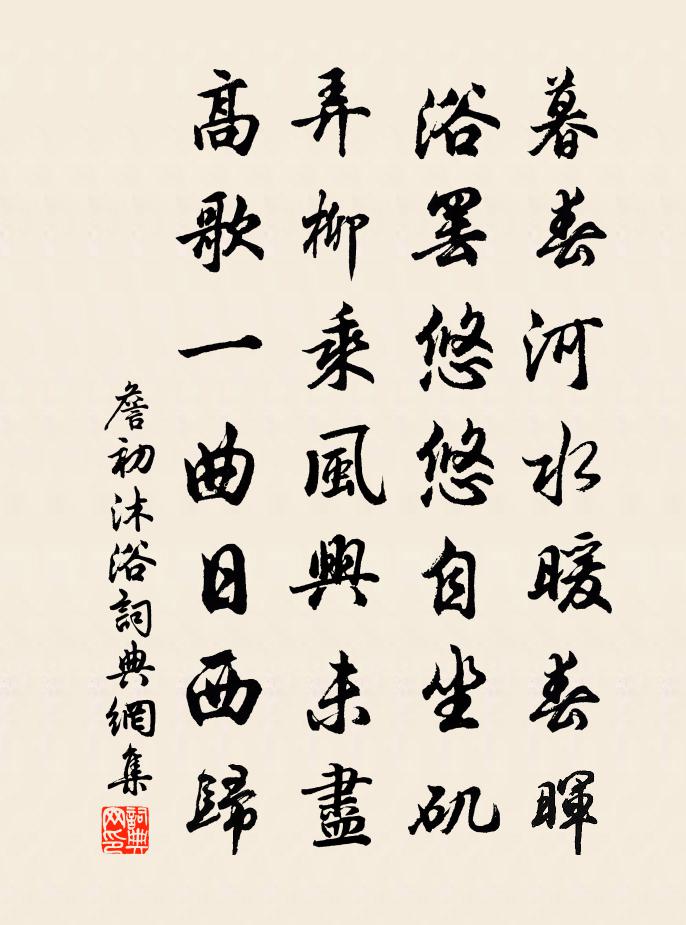 暮春河水暖春暉
浴罷悠悠自坐矶
弄柳乘風興未盡
高歌一曲日西歸
詹初沐浴詞典網集
詞典网印